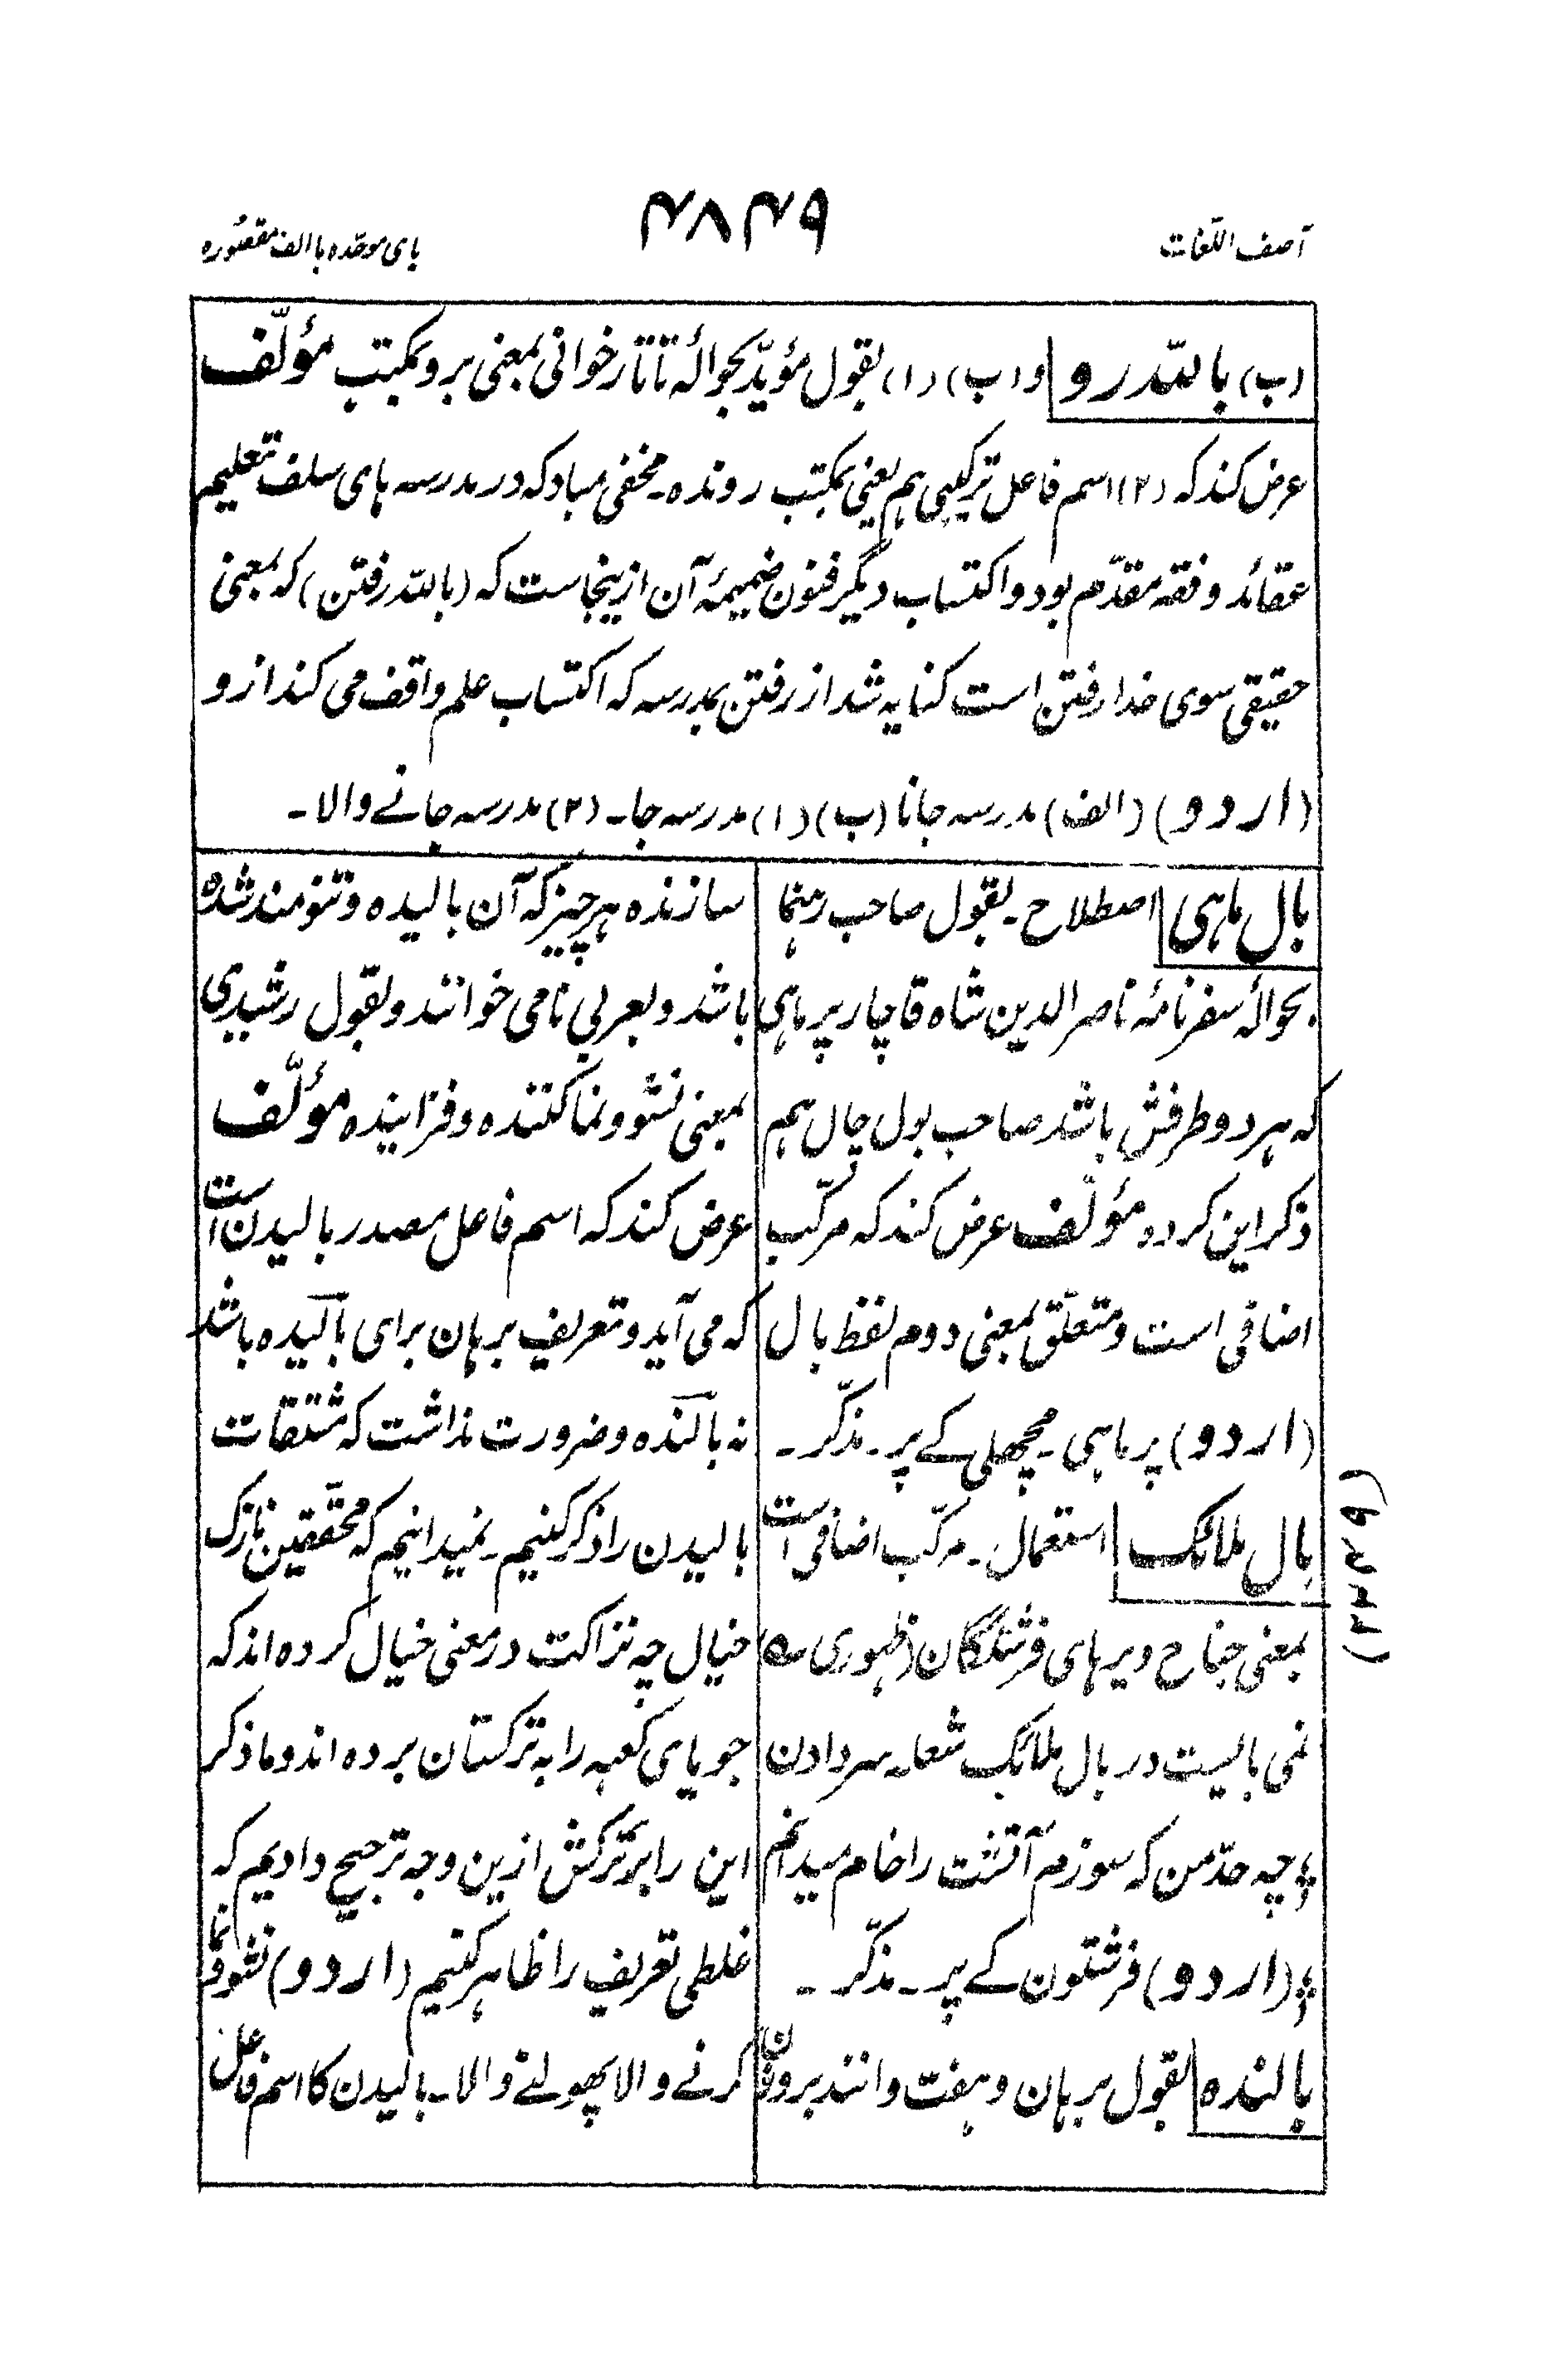 آصف اللّغات
۴۸۴۹
بای موحّدہ با الف مقصورہ
(ب) باللّٰہ رو و (ب) (۱) بقول مؤیّد بحوالۂ تاتارخوانی بمعنی برو بمکتب مؤلّف
عرض کند کہ (۲) اسم فاعل ترکیبی ہم یعنی بمکتب روندہ۔ مخفی مباد کہ در مدرسہ ہای سلف تعلیم
عقائد و فقہ مقدّم بود و اکتساب دیگر فنون ضمیمۂ آن ازینجاست کہ (باللّٰہ رفتن) کہ بمعنی
حقیقی سوی خدا رفتن است کنایہ شد از رفتن بمدرسہ کہ اکتساب علم واقف می کند ازو
(اردو) (الف) مدرسہ جانا (ب) (۱) مدرسہ جا۔ (۲) مدرسہ جانے والا۔
بال ماہی اصطلاح۔ بقول صاحب رہنما
بحوالۂ سفرنامۂ ناصر الدین شاہ قاچار پر ماہی
کہ ہر دو طرفش باشد صاحب بول چال ہم
ذکر این کردہ مؤلّف عرض کند کہ مرکّب
اضافی است و متعلّق بمعنی دوم لفظ بال
(اردو) پر ماہی۔ مچھلی کے پر۔ مذکّر۔
بال ملائک استعمال۔ مرکّب اضافی است
بمعنی جناح و پرہای فرشتگان (ظہوری ؎)
نمی بایست در بال ملائک شعلہ سر دادن
؛؛ چہ حدّ من کہ سوزم آتشت را خام میدانم
؛؛ (اردو) فرشتون کے پر۔ مذکّر۔
بالندہ بقول برہان و ہفت و انند بر وزن
سازندہ ہر چیز کہ آن بالیدہ و تنومند شدہ
باشد و بعربی نامی خوانند و بقول رشیدی
بمعنی نشو و نما کنندہ و فزایندہ مؤلّف
عرض کند کہ اسم فاعل مصدر بالیدن است
کہ می آید و تعریف برہان برای بالیدہ باشد
نہ بالندہ و ضرورت نداشت کہ مشتقات
بالیدن را ذکر کنیم۔ نمیدانیم کہ محقّقین نازک
خیال چہ نزاکت در معنی خیال کردہ اند کہ
جویای کعبہ را بہ ترکستان بردہ اند و ما ذکر
این را بر ترکش ازین وجہ ترجیح دادیم کہ
غلطی تعریف را ظاہر کنیم (اردو) نشو و نما
کرنے والا پھولنے والا۔ بالیدن کا اسم فاعل